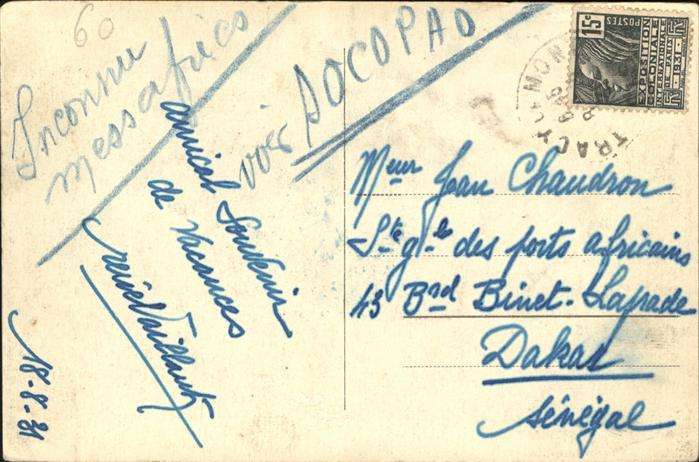 60
Inconnu
messafric
voir SOCOPAO
amical Souvenir
de Vacances
18-8-31
15c
POSTES
EXPOSITION
COLONIALE
INTERNATIONALE
DE PARIS
1931
TRACY LE MON
Meur Jean Chaudron
Sté gle des ports africains
43 Bard Binet-Laprade
Dakar
Sénégal